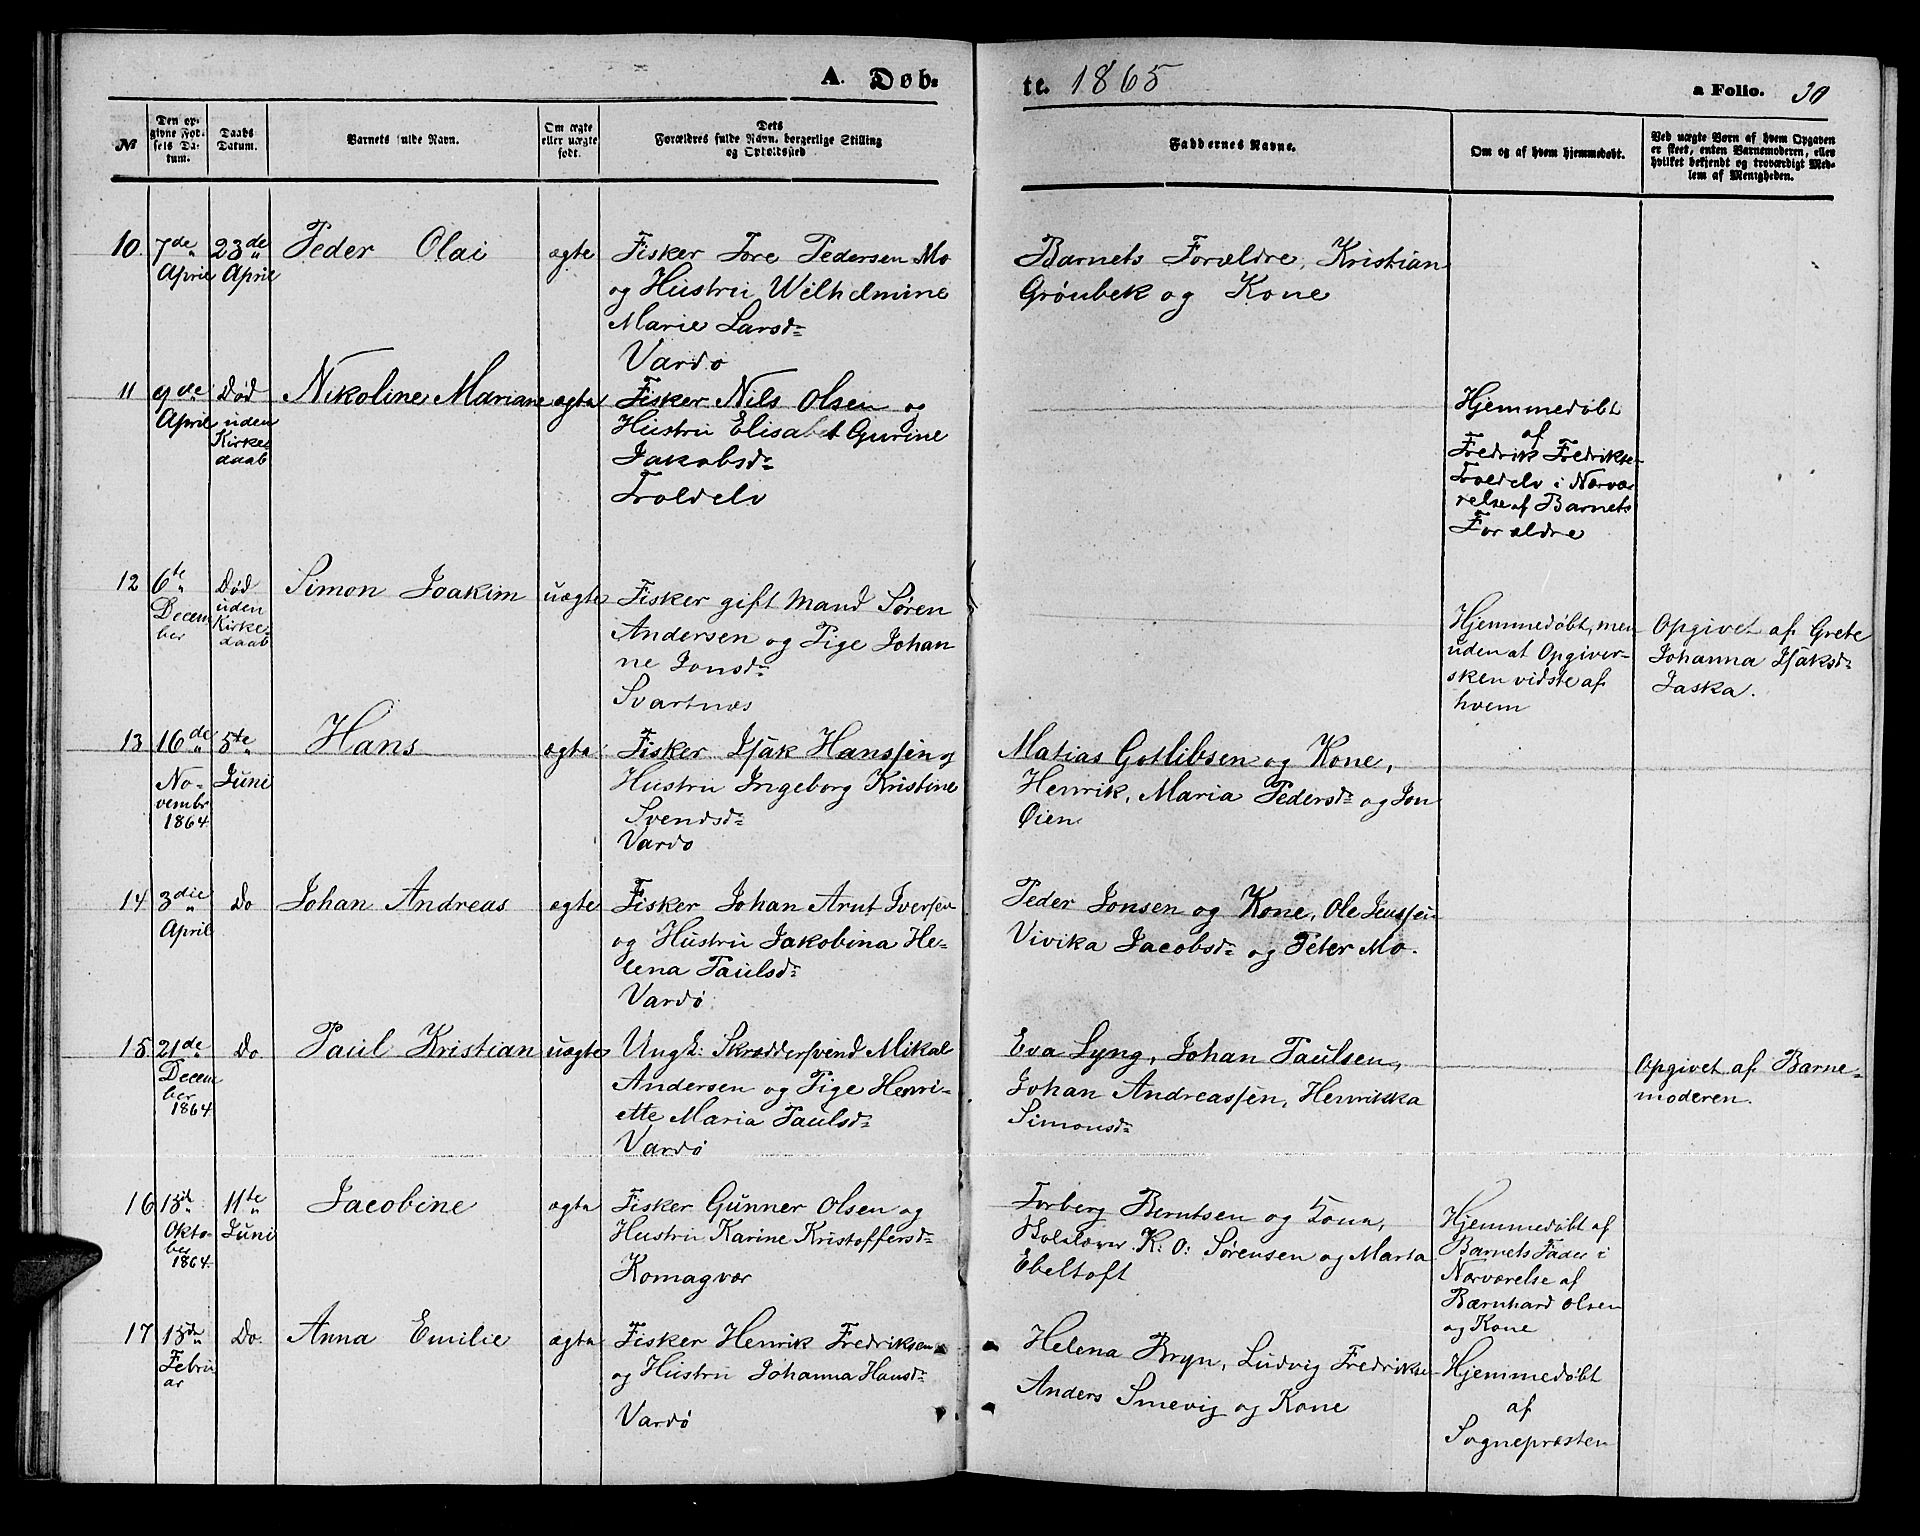 A. Døb-
te. 1865
a Folio. 30
№
Den op-
givne Fød-
sels Da-
tum.
Daabs
Datum.
Barnets fulde Navn.
Om ægte
eller uægte
født.
Dets
Forældres fulde Navn, borgerlige Stilling
og Opholdssted
Faddernes Navne.
Om og af hvem hjemmedøbt.
Ved uægte Børn af hvem Opgaven
er skeet, enten Barnemoderen, eller
hvilket bekjendt og troværdigt Med-
lem af Menigheden.
10.
7de
April
23de
April
Peder Olai
ægte
Fisker Tore Pedersen Mo
og Hustru Wilhelmine
Marie Larsd=
Vardø
Barnets Forældre, Kristian
Grønbek og Kone
11
9de
April
Død
uden
Kirke
daab
Nikoline Mariane
ægte
Fisker Nils Olsen og
Hustru Elisabet Gurine
Jakobsd=
Troldelv
Hjemmedøbt
af
Fredrik Fredrikse-
Troldelv i Nærvæ
relse af Barnets
Forældre
12
6te
Decem
ber
Død
uden
Kirke
daab
Simon Joakim
uægte
Fisker gift Mand Søren
Andersen og Pige Johan
ne Jonsd=
Svartnæs
Hjemmedøbt, men
uden at Opgiver-
sken vidste af
hvem
Opgivet af Grete
Johanna Isaksd=
Jaska.
13
16de
No-
vembr
1864
5te
Juni
Hans
ægte
Fisker Isak Hanssen og
Hustru Ingeborg Kristine
Svendsd=
Vardø
Matias Gotlibsen og Kone,
Henrik, Maria Pedersd= og Jon
Øien
14
3die
April
Do
Johan Andreas
ægte
Fisker Johan Arnt Iversen
og Hustru Jakobina He-
lena Paulsd=
Vardø
Peder Jonsen og Kone, Ole Jenssen
Vivika Jacobsd= og Peter Mo.
15
21de
Decem
ber
1864
Do
Paul Kristian
uægte
Ungk: Skræddersvend Mikal
Andersen og Pige Henri-
ette Maria Paulsd=
Vardø
Eva Lyng, Johan Paulsen,
Johan Andreassen, Henrikka
Simonsd=
Opgivet af Barne-
moderen.
16
13de
Okto-
ber
1864
11te
Juni
Jacobine
ægte
Fisker Gunner Olsen og
Hustru Karine Kristoffersd=
Komagvær
Torberg Berntsen og Kona,
K: O: Sørensen og Marta
Ebeltoft
Hjemmedøbt af
Barnets Fader i
Nærværelse af
Bærnhard Olsen
og Kone
17
13de
Febru
ar
Do.
Anna Emilie
ægte
Fisker Henrik Fredriksen
og Hustru Johanna Hansd=
Vardø
Helena Bryn, Ludvig Fredrikse-
Anders Smevig og Kone
Hjemmedøbt
af
Sognepræsten